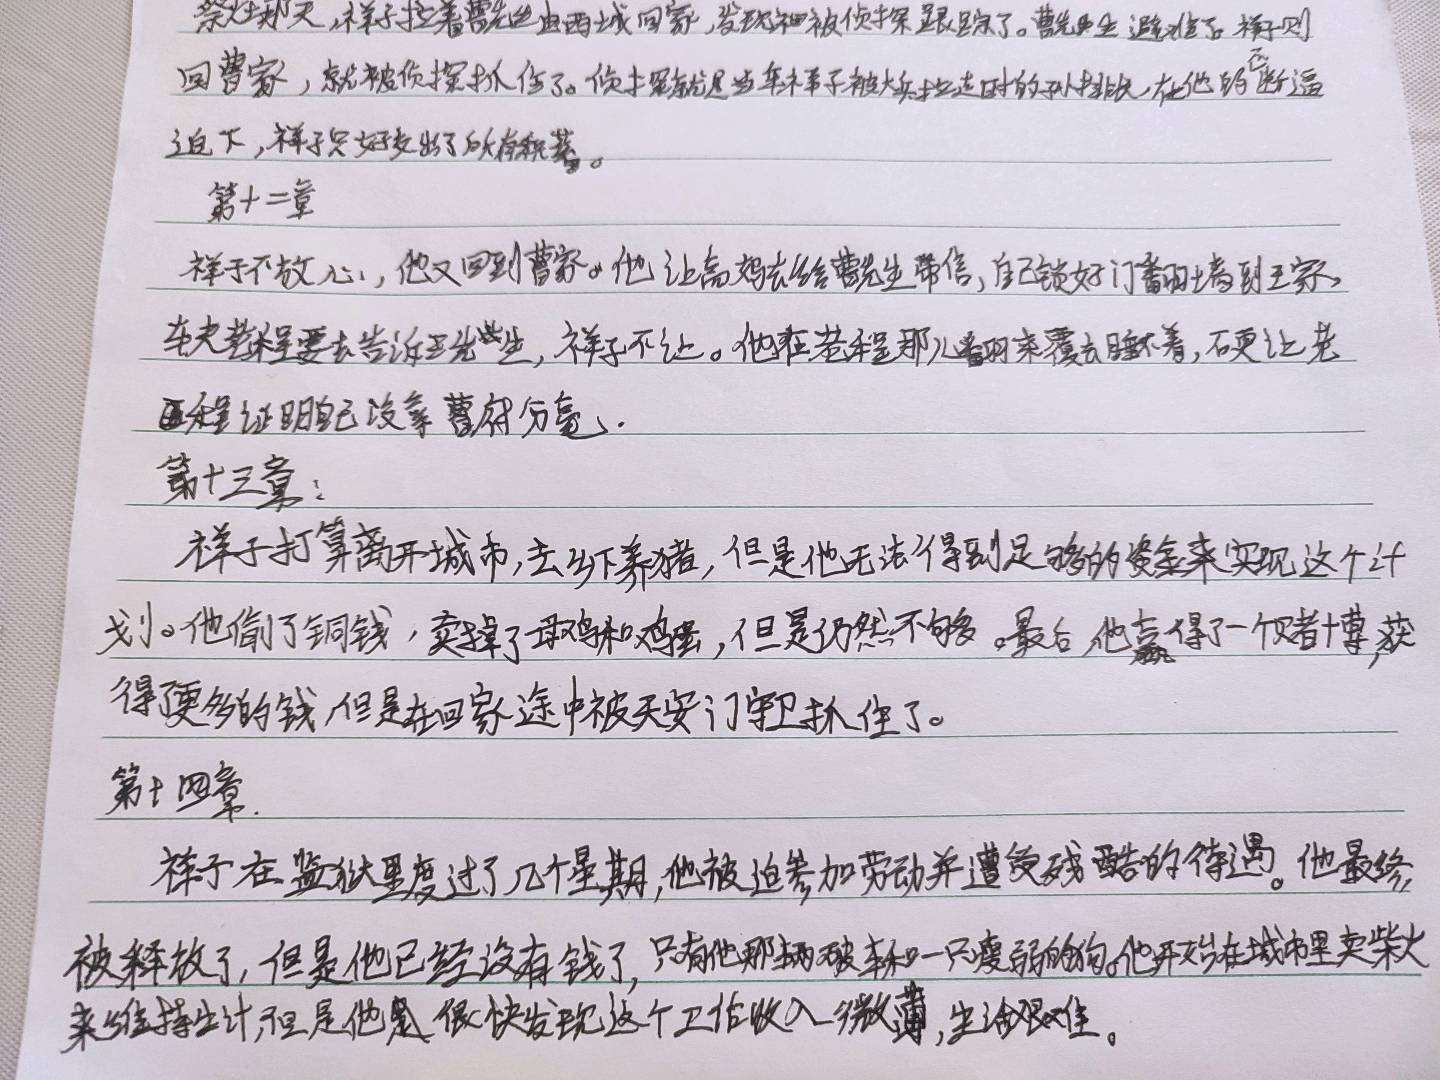 祭灶那天，祥子拉着曹先生由西城回家，发现被侦探跟踪了。曹先生避难了。祥子则
回曹家，就被侦探抓住了。侦探就是当年祥子被大兵拉走时的孙排长，在他的不断逼
迫下，祥子只好交出了所有积蓄。
第十二章
祥子不放心，他又回到曹家。他让高妈去给曹先生带信，自己锁好门翻墙到王家。
车夫老程要去告诉王先生，祥子不让。他在老程那儿翻来覆去睡不着，硬让老
程证明自己没拿曹府分毫.
第十三章：
祥子打算离开城市，去乡下养猪，但是他无法得到足够的资金来实现这个计
划。他偷了铜钱，卖掉了母鸡和鸡蛋，但是仍然不够。最后，他赢得了一个赌博，获
得了更多的钱，但是在回家途中被天安门守卫抓住了。
第十四章.
祥子在监狱里度过了几个星期，他被迫参加劳动并遭受残酷的待遇。他最终
被释放了，但是他已经没有钱了，只有他那辆破车和一只瘦弱的狗。他开始在城市里卖柴火
来维持生计，但是他很快发现这个工作收入微薄，生活艰难。